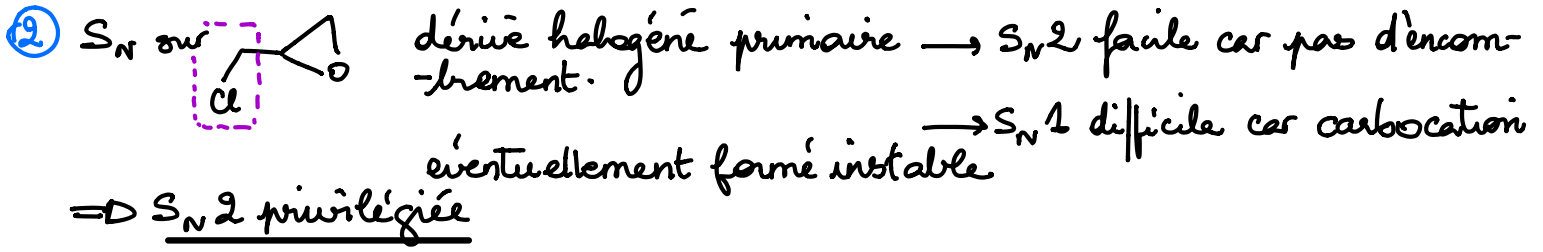 ② S_N sur Cl O dérivé halogéné primaire → S_N2 facile car pas d'encom-
-brement. → S_N1 difficile car carbocation
éventuellement formé instable
⇒ S_N2 privilégiée